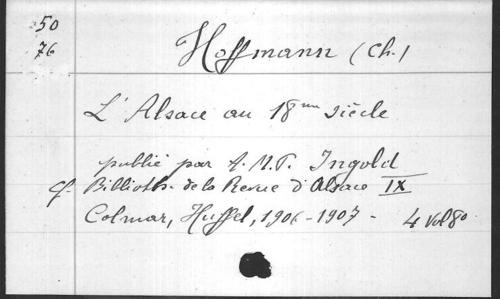 50
76
Hoffmann (Ch.)
L'Alsace au 18me siècle
publié par A.M.P. Ingold
cf. Billioth. de la Revue d'Alsace IX
Colmar, Hüffel, 1906-1907 - 4 vol 8o